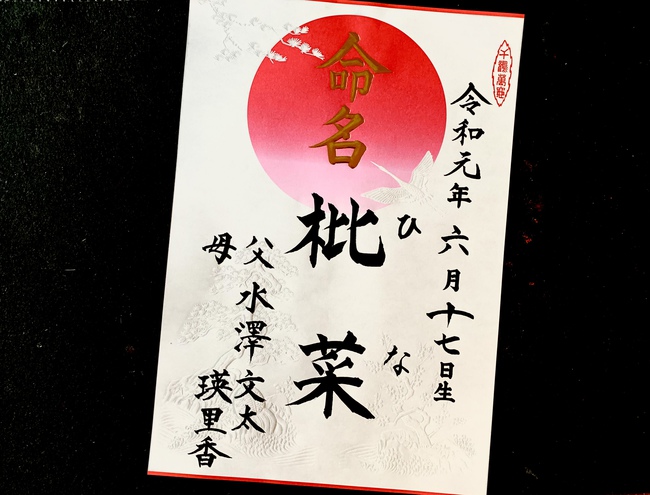 命名
令和元年 六月十七日生
枇菜
ひな
父 水澤 文太
母 瑛里香